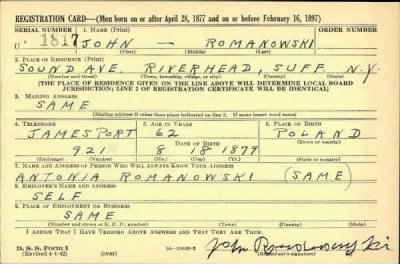 REGISTRATION CARD—(Men born on or after April 28, 1877 and on or before February 16, 1897)
SERIAL NUMBER 1. NAME (Print) ORDER NUMBER
U 1817 JOHN — ROMANOWSKI
(First) (Middle) (Last)
2. PLACE OF RESIDENCE (Print)
SOUND AVE. RIVERHEAD SUFF. N.Y.
(Number and street) (Town, township, village, or city) (County) (State)
[THE PLACE OF RESIDENCE GIVEN ON THE LINE ABOVE WILL DETERMINE LOCAL BOARD
JURISDICTION; LINE 2 OF REGISTRATION CERTIFICATE WILL BE IDENTICAL]
3. MAILING ADDRESS
SAME
(Mailing address if other than place indicated on line 2. If same insert word same)
4. TELEPHONE 5. AGE IN YEARS 6. PLACE OF BIRTH
JAMESPORT 62 POLAND
DATE OF BIRTH (Town or county)
921 8 18 1879
(Exchange) (Number) (Mo.) (Day) (Yr.) (State or country)
7. NAME AND ADDRESS OF PERSON WHO WILL ALWAYS KNOW YOUR ADDRESS
ANTONIA ROMANOWSKI (SAME)
8. EMPLOYER'S NAME AND ADDRESS
SELF
9. PLACE OF EMPLOYMENT OR BUSINESS
SAME
(Number and street or R. F. D. number) (Town) (County) (State)
I AFFIRM THAT I HAVE VERIFIED ABOVE ANSWERS AND THAT THEY ARE TRUE.
D. S. S. Form 1
(Revised 4-1-42) (over) John